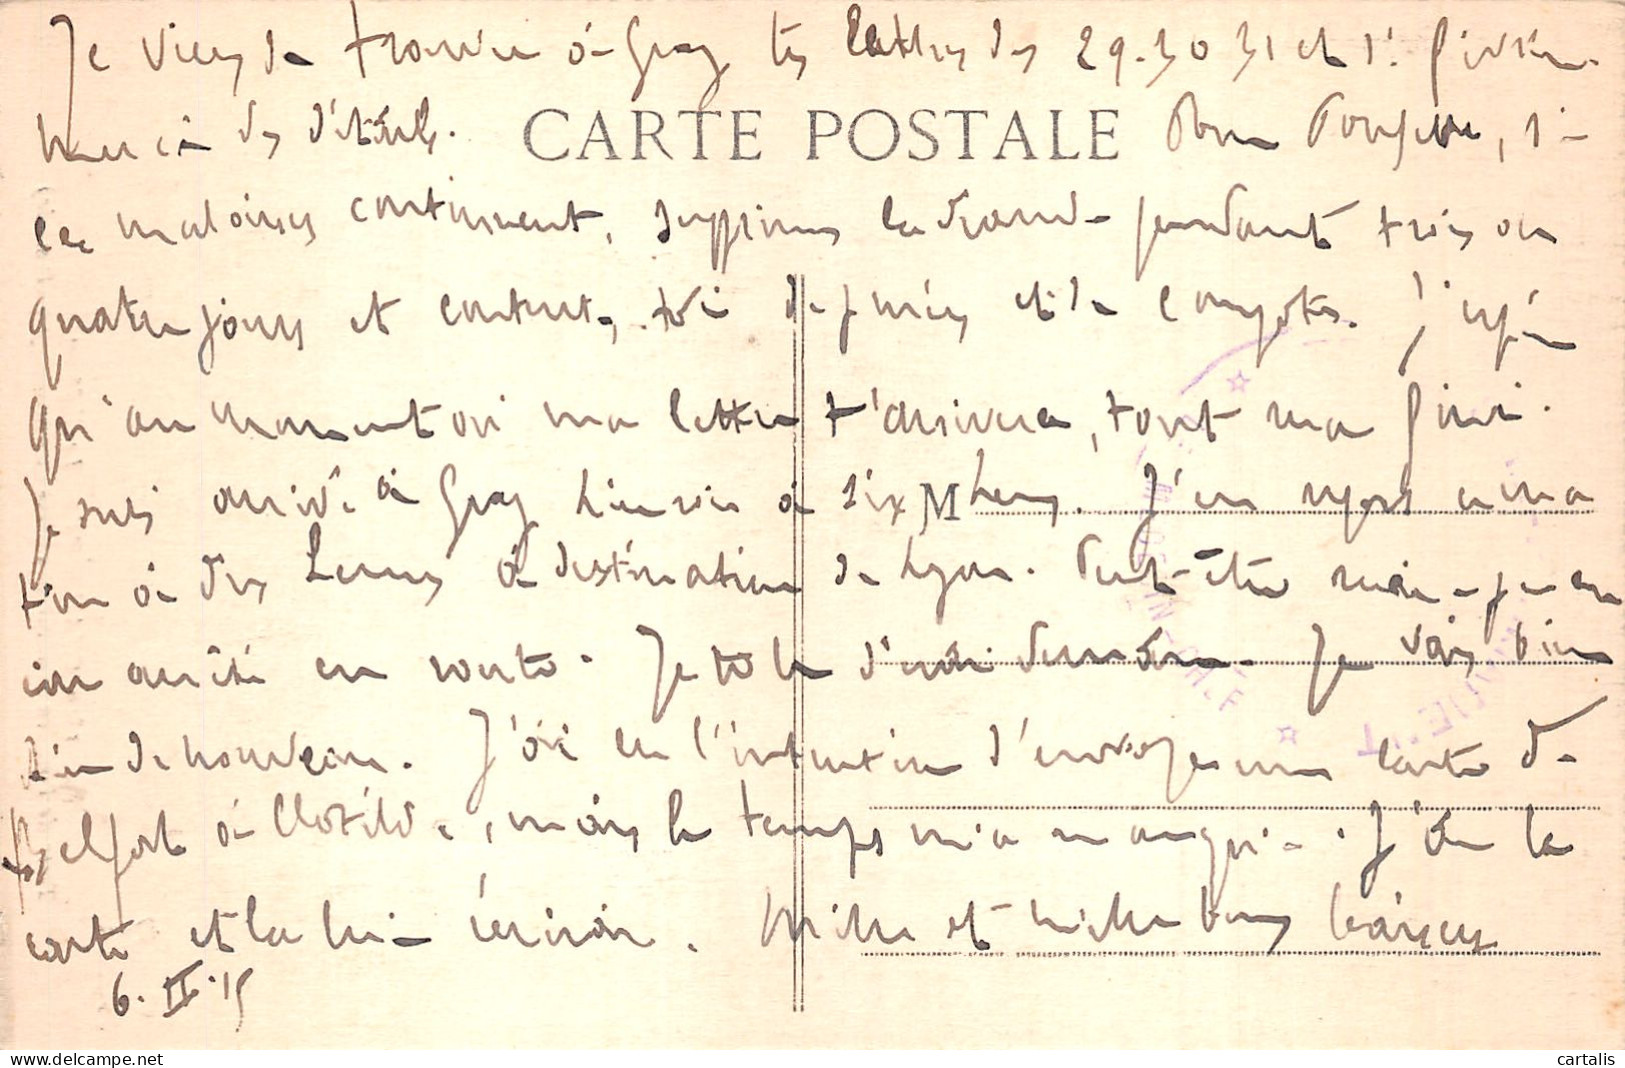 Je viens de trouver à Gray tes lettres des 29. 30 31 et 1er février.
merci des détails. CARTE POSTALE Pour Poupette, si
les malaises continuent, supprimes la viande pendant trois ou
quatre jours et contentes toi de purées et de compotes. J'espère
qu'au moment où ma lettre t'arrivera, tout sera fini.
Je suis arrivé à Gray hier soir à six heures. J'en repars ce
à des heures à destination de Lyon. Peut-être serai-je en
arrêté en route. Je Je vais bien
de nouveau. J'ai eu l'intention d'envoyer une carte de
Belfort à Clotilde, mais le temps m'a manqué. J'ai la
carte et la lui écrirai. Mille et mille bons baisers
6. II. 15
cartalis